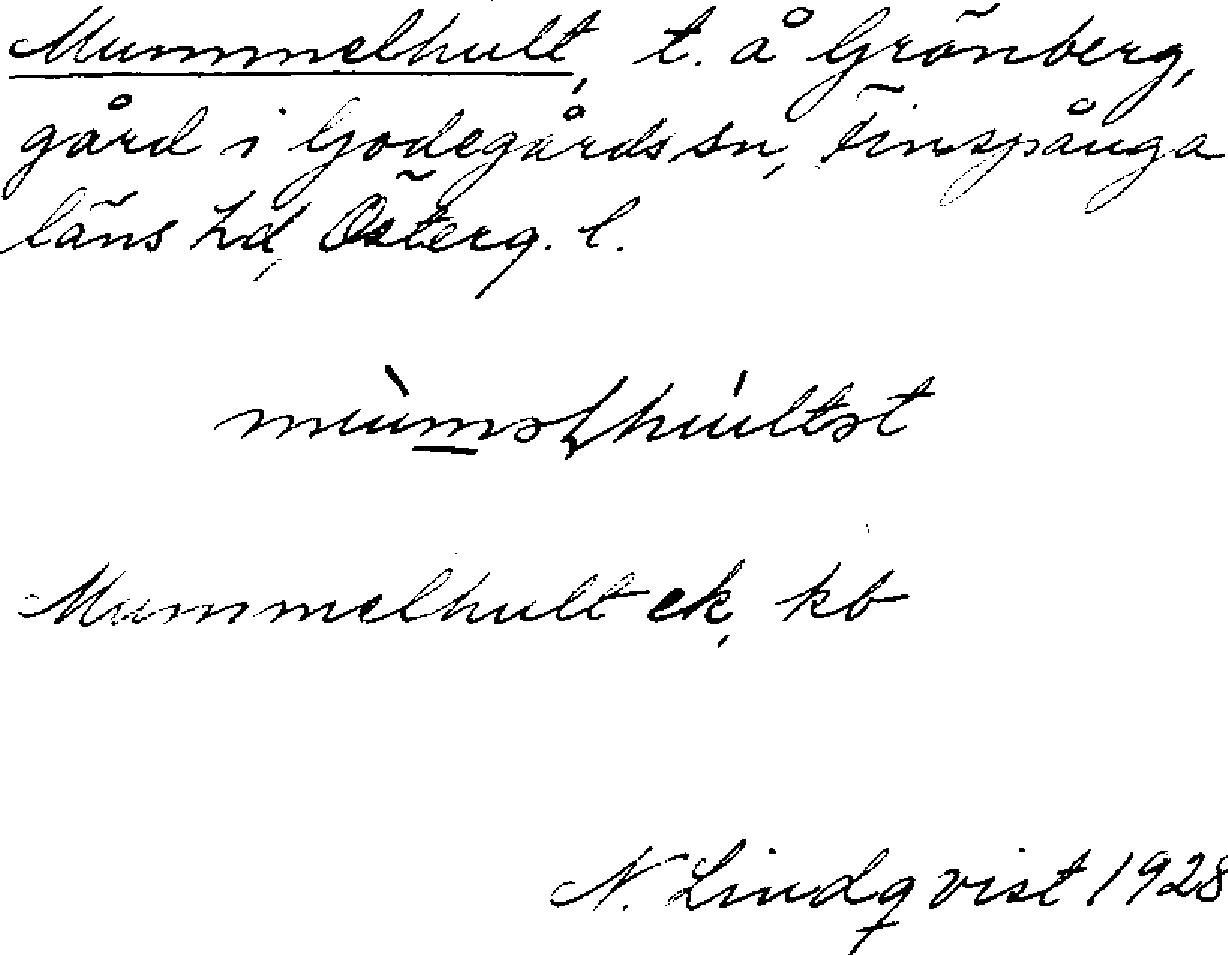 Mummelhult, t. å Grönberg,
gård i Godegårds sn, Finspånga
läns hd, Österg. l.
Mummelhult ek, kb
N. Lindqvist 1928